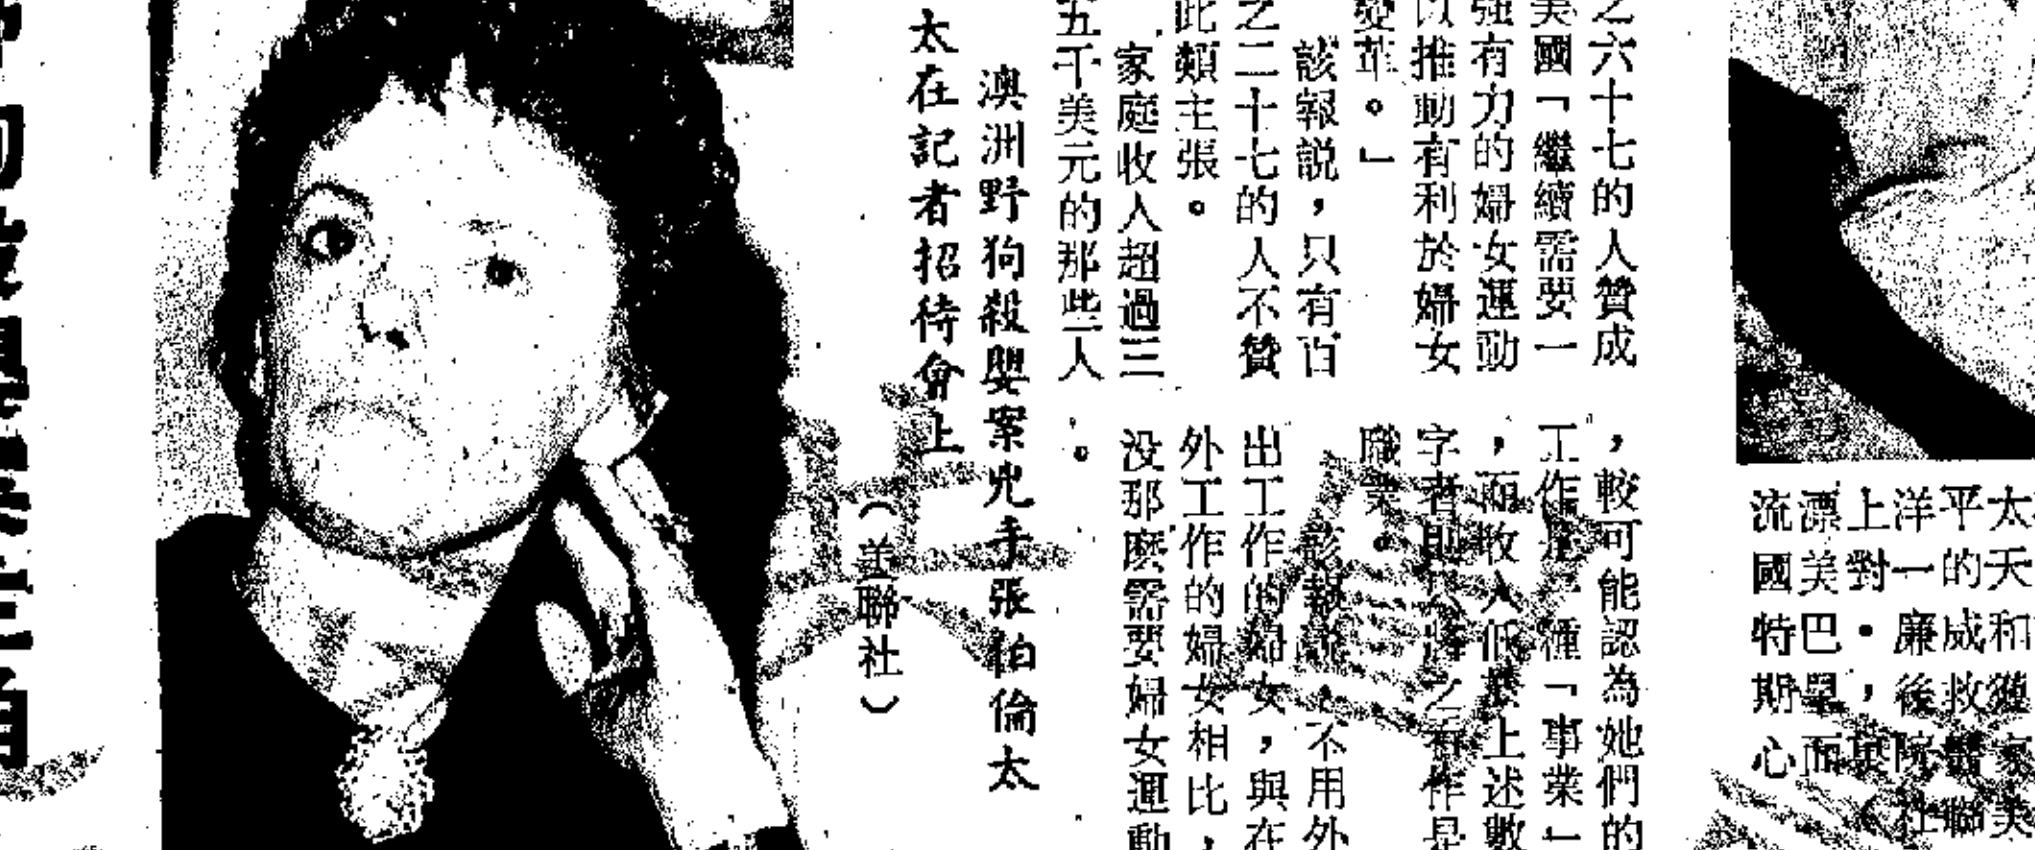 之六十七的人贊成
美國「繼續需要一
强有力的婦女運動
以推動有利於婦女
變革。」
該報説，只有百
之二十七的人不贊
此類主張。
家庭收入超過三
五千美元的那些人
，較可能認為她們的
工作是一種「事業」
，而收入低於上述數
字者則只將之看作是
職業。
該報説，不用外
出工作的婦女，與在
外工作的婦女相比，
没那麽需要婦女運動
。
澳洲野狗殺嬰案兇手張伯倫太
太在記者招待會上
（美聯社）
太平洋上漂流
天的一對美國
和威廉·巴特
獲救後，畢斯
而心
美聯社